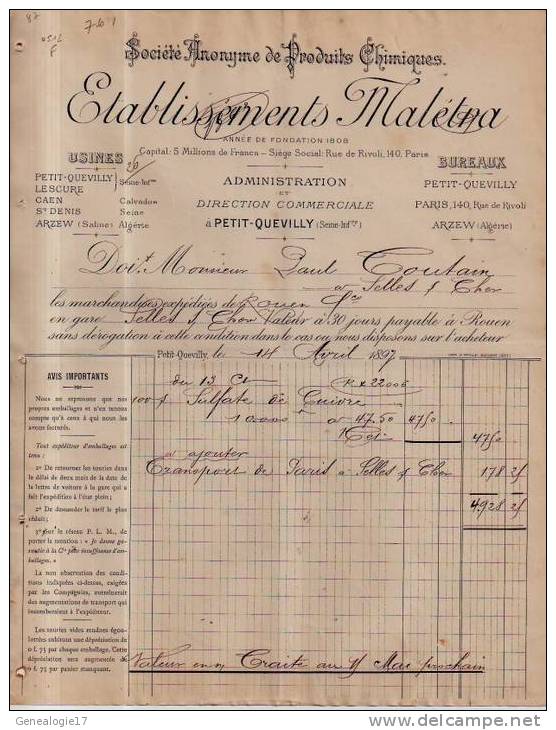 87
Société Anonyme de Produits Chimiques.
Etablissements Malétra
ANNÉE DE FONDATION 1808
Capital: 5 Millions de Francs — Siége Social: Rue de Rivoli, 140, Paris
USINES
PETIT-QUEVILLY
LESCURE
Seine-Infre
CAEN Calvados
St DENIS Seine
ARZEW (Saline) Algérie
ADMINISTRATION
ET
DIRECTION COMMERCIALE
à PETIT-QUEVILLY (Seine-Infre)
BUREAUX
PETIT-QUEVILLY
PARIS, 140, Rue de Rivoli
ARZEW (Algérie)
Doit Monsieur Paul Coutain
à Selles s/ Cher
les marchandises expédiées de Rouen
en gare Selles s/ Cher Valeur à 30 jours payable à Rouen
sans dérogation à cette condition dans le cas ou nous disposons sur l'acheteur
Petit-Quevilly, le 14 Avril 1897
AVIS IMPORTANTS
Nous ne reprenons que nos
propres emballages et n'en tenons
compte qu'à ceux à qui nous les
avons facturés.
Tout expéditeur d'emballages est
tenu :
1° De retourner les touries dans
le délai de deux mois de la date de
la lettre de voiture à la gare qui a
fait l'expédition à l'état plein ;
2° De demander le tarif le plus
réduit ;
3° Sur le réseau P. L. M., de
porter la mention : « Je donne ga-
rantie à la Cie pour insuffisance d'em-
ballages. »
La non observation des condi-
tions indiquées ci-dessus, exigées
par les Compagnies, entraînerait
des augmentations de transport qui
incomberaient à l'expéditeur.
Les touries vides rendues égou-
lottées subiront une dépréciation de
0 f. 75 par chaque emballage. Cette
dépréciation sera augmentée de
0 f. 75 par panier manquant.
du 13 Ct
100 f Sulfate de Cuivre
10.000 à 47.50 4750
4750
à ajouter
Transport de Paris à Selles s/ Cher 178 25
4928 25
Valeur en Traite au 15 Mai prochain
Genealogie17